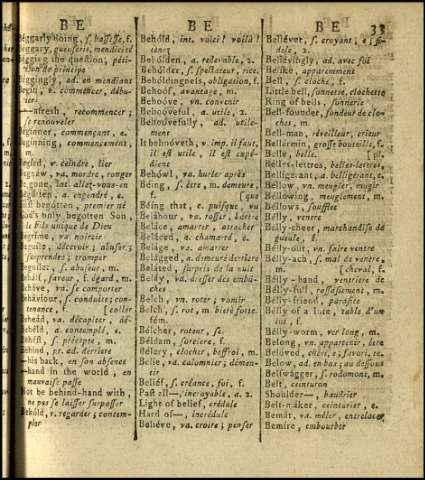 B E
B E
B E
33
Beggarly doing, s. bassesse, f.
Béggary, gueuserie, mendicité
Bégging the question, péti-
tion de principe
Béggingly, ad. en mendiant
Begin, v. commencer, débu-
ter
—afresh, recommencer;
se renouveler
Beginner, commençant, e.
Beginning, commencement,
m.
Begírd, v. ceindre, lier
Begnáw, va. mordre, ronger
Be gone, int. allez-vous-en
Begótten, a. engendré, e.
First begótten, premier né
God's only begotten Son,
le Fils unique de Dieu
Begríme, va. noircir
Beguíle, décevoir; abuser;
surprendre; tromper
Beguíler, s. abuseur, m.
Behálf, faveur, f. égard, m.
Beháve, va. se comporter
Behaviour, s. conduite; con-
tenance, f. [coller
Behéad, va. décapiter, dé-
Behéld, a. contemplé, e.
Behést, s. précepte, m.
Behínd, pr. ad. derriere
his back, en son absence
—hand in the world, en
mauvaise passe
Not be behind-hand with,
ne pas se laisser surpasser
Behóld, v. regarder; contem-
pler
Behóld, int. voici! voilà!
tiens
Behólden, a. redevable, 2.
Behólder, s. spectateur, rice.
Behóldingness, obligation, f.
Behoof, avantage, m.
Behoove, vn. convenir
Behooveful, a. utile, 2.
Behoovefully, ad. utile-
ment
It behnóveth, v. imp. il faut,
il est utile, il est expé-
dient
Behówl, va. hurler après
Béing, s. être, m. demeure,
f. [que
Béing that, c. puisque, vu
Belábour, va. rosser, battre
Belàce, amarrer, attacher
Beláced, a. chamarré, e.
Beláge, va. amarrer
Belágged, a. demeuré derriere
Beláted, surpris de la nuit
Beláy, va. dresser des embû-
ches
Belch, vn. roter; vomir
Belch, s. rot, m. bière forte,
fém.
Bélcher, roteur, se.
Béldam, sorciere, f.
Bélery, clocher, beffroi, m.
Belíe, va. calomnier; démen-
tir
Belíéf, s. créance, foi, f.
Past all—, incroyable, a. 2.
Light of belief, crédule
Hard of—, incrédule
Belíéve, va. croire; penser
Belíéver, s. croyant, e; fi-
dele, 2.
Belíévingly, ad. avec foi
Belíke, apparemment
Bell, s. cloche, f.
Little bell, sonnette, clochette
Ring of bells, sonnerie
Bell-founder, fondeur de clo-
ches, m.
Bell-man, réveilleur, crieur
Bellármin, grosse bouteille, f.
Belle, belle. [pl.
Belles-lettres, belles-lettres,
Belligerant, a. belligérant, e.
Béllow, vn. meugler, mugir
Béllowing, meuglement, m.
Béllows, soufflet
Bélly, ventre
Bélly-cheer, marchandise de
gueule, f.
Bélly-out, va. faire ventre
Bélly-ach, s. mal de ventre,
m. [cheval, f.
Bélly-band, ventriere de
Bélly-full, rassasiement, m.
Bélly-friend, parasite
Bélly of a lute, table d'un
lut, f.
Bélly-worm, ver long, m.
Belong, vn. appartenir, être
Belóved, chéri, e; favori, te.
Belów, ad. en bas; au dessous
Belswágger, s. rodomont, m.
Belt, ceinturon
Shoulder—, baudrier
Belt-maker, ceinturier, e.
Bemát, va. mêler, entrelacer
Bemíre, embourber